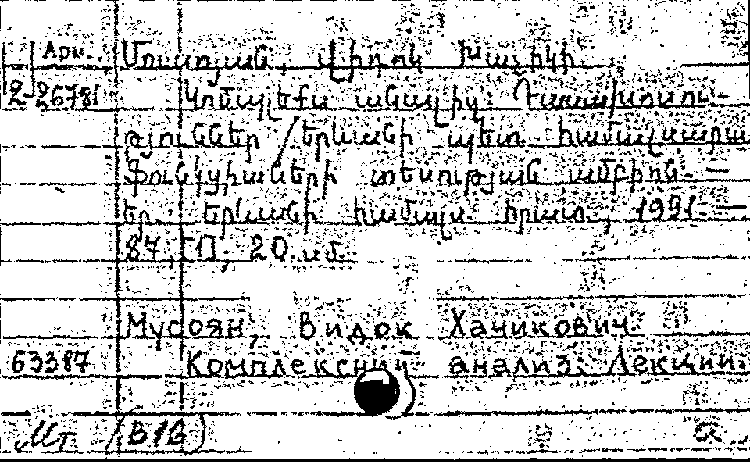 Арм. Մուսոյան, Վիդոկ Խաչիկի.
2 26781 Կոմպլեքս անալիզ: Դասախոսու-
թյուններ / Երևանի պետ. համալսարա
Ֆունկցիաների տեսության ամբիոն. —
Եր.: Երևանի համալս. հրատ., 1991. —
87, [1], 20 սմ.
Мусоян, Видок Хачикович.
63387 Комплексний анализ: Лекции.
Мт (В1В)